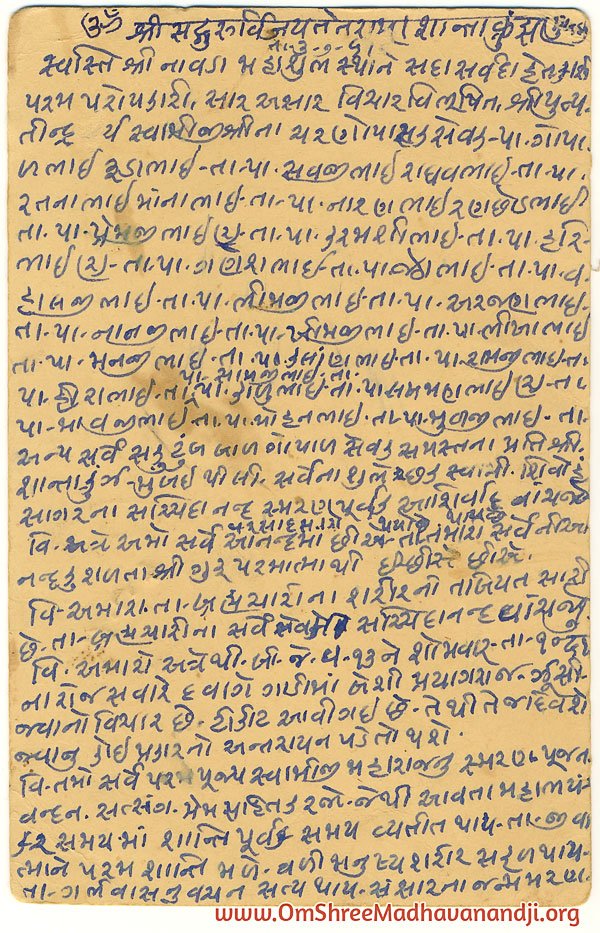 ૐ શ્રી સદ્ગુરુર્વિજયતેતરામ્ શાન્તાક્રુંઝ
તા. ૩-૭-૫૧
સ્વસ્તિ શ્રી નાવડા મહાશુભ સ્થાને સદા સર્વદા
પરમ પરોપકારી, સાર અસાર વિચાર વિભૂષિત, શ્રી પુજ્ય
સ્વામીજીશ્રીના ચરણોપાસક સેવક-પા. ગોપા-
ળભાઇ રૂડાભાઇ-તા-પા. સવજીભાઇ રાઘવભાઇ-તા-પા.
રતનાભાઇ માંનાભાઇ-તા-પા. નારણભાઇ રણછોડભાઇ
તા. પા. પ્રેમજીભાઇ (૨) તા. પા. કરમશીભાઇ-તા. પા. હરિ-
ભાઇ (૨)-તા. પા. ગણેશભાઇ-તા. પા. જેઠાભાઇ-તા. પા. વ-
હાલજીભાઇ-તા. પા. ભીમજીભાઇ-તા. પા. અરજણભાઇ-
તા. પા. નાનજીભાઇ-તા. પા. ખીમજીભાઇ-તા. પા. ભીખાભાઇ
તા. પા. મનજીભાઇ-તા. પા. કલ્યાણભાઇ-તા. પા. રામજીભાઇ-તા.
પા. સામજીભાઇ-તા.
પા. હીરાભાઇ-તા. પા. કાળુભાઇ-તા. પા. (૨)-તા.
પા. માવજીભાઇ તા. પા. મોહનભાઇ-તા. પા. મુળજીભાઇ-તા.
અન્ય સર્વે સકુટુંબ બાળ ગોપાળ સેવક સમસ્તના પ્રતિ શ્રી
શાન્તાક્રુંઝ-મુંબઇ થી લી. સર્વેના શુભેચ્છક સ્વામી. શિવોહં
સાગરના સચ્ચિદાનન્દ સ્મરણ પૂર્વક આશિર્વાદ વાંચજો
વિ-અત્રે અમો સર્વે આનન્દમાં છીએ-તમારા સર્વેની આ-
નન્દ કુશળતા શ્રી ગુરુ પરમાત્માથી ઇચ્છીએ છીએ.
વિ-અમારા-તા-બ્રહ્મચારીના શરીરની તબિયત સારી
છે-તા-બ્રહ્મચારીના સર્વે સેવકોને સચ્ચિદાનન્દ વાંચજો
વિ. અમારો અત્રેથી-બી. જે. વ-૧૩ ને શોમવાર-તા-૧
ના રોજ સવારે ૬ વાગે ગાડીમાં બેસી પ્રયાગરાજ-ઝુસી
જવાનો વિચાર છે-ટીકીટ આવી ગઇ છે-તેથી તે જ દિવસે
જવાનુ કોઇ પ્રકારનો અન્તરાય ન પડે તો થશે.
વિ-તમો સર્વે પરમ પૂજ્ય સ્વામીજી મહારાજનુ સ્મરણ, પૂજન,
વન્દન, સત્સંગ, પ્રેમ સહિત કરજો-જેથી આવતા મહા ભયં-
કર સમયમાં શાન્તિ પૂર્વક સમય વ્યતીત થાય-તા-જીવા-
ત્માને પરમ શાન્તિ મળે-વળી મનુષ્ય શરીર સફળ થાય-
તા-ગર્ભવાસનુ વચન સત્ય થાય-સંસારના જન્મ મરણ
www.OmShreeMadhavanandji.org